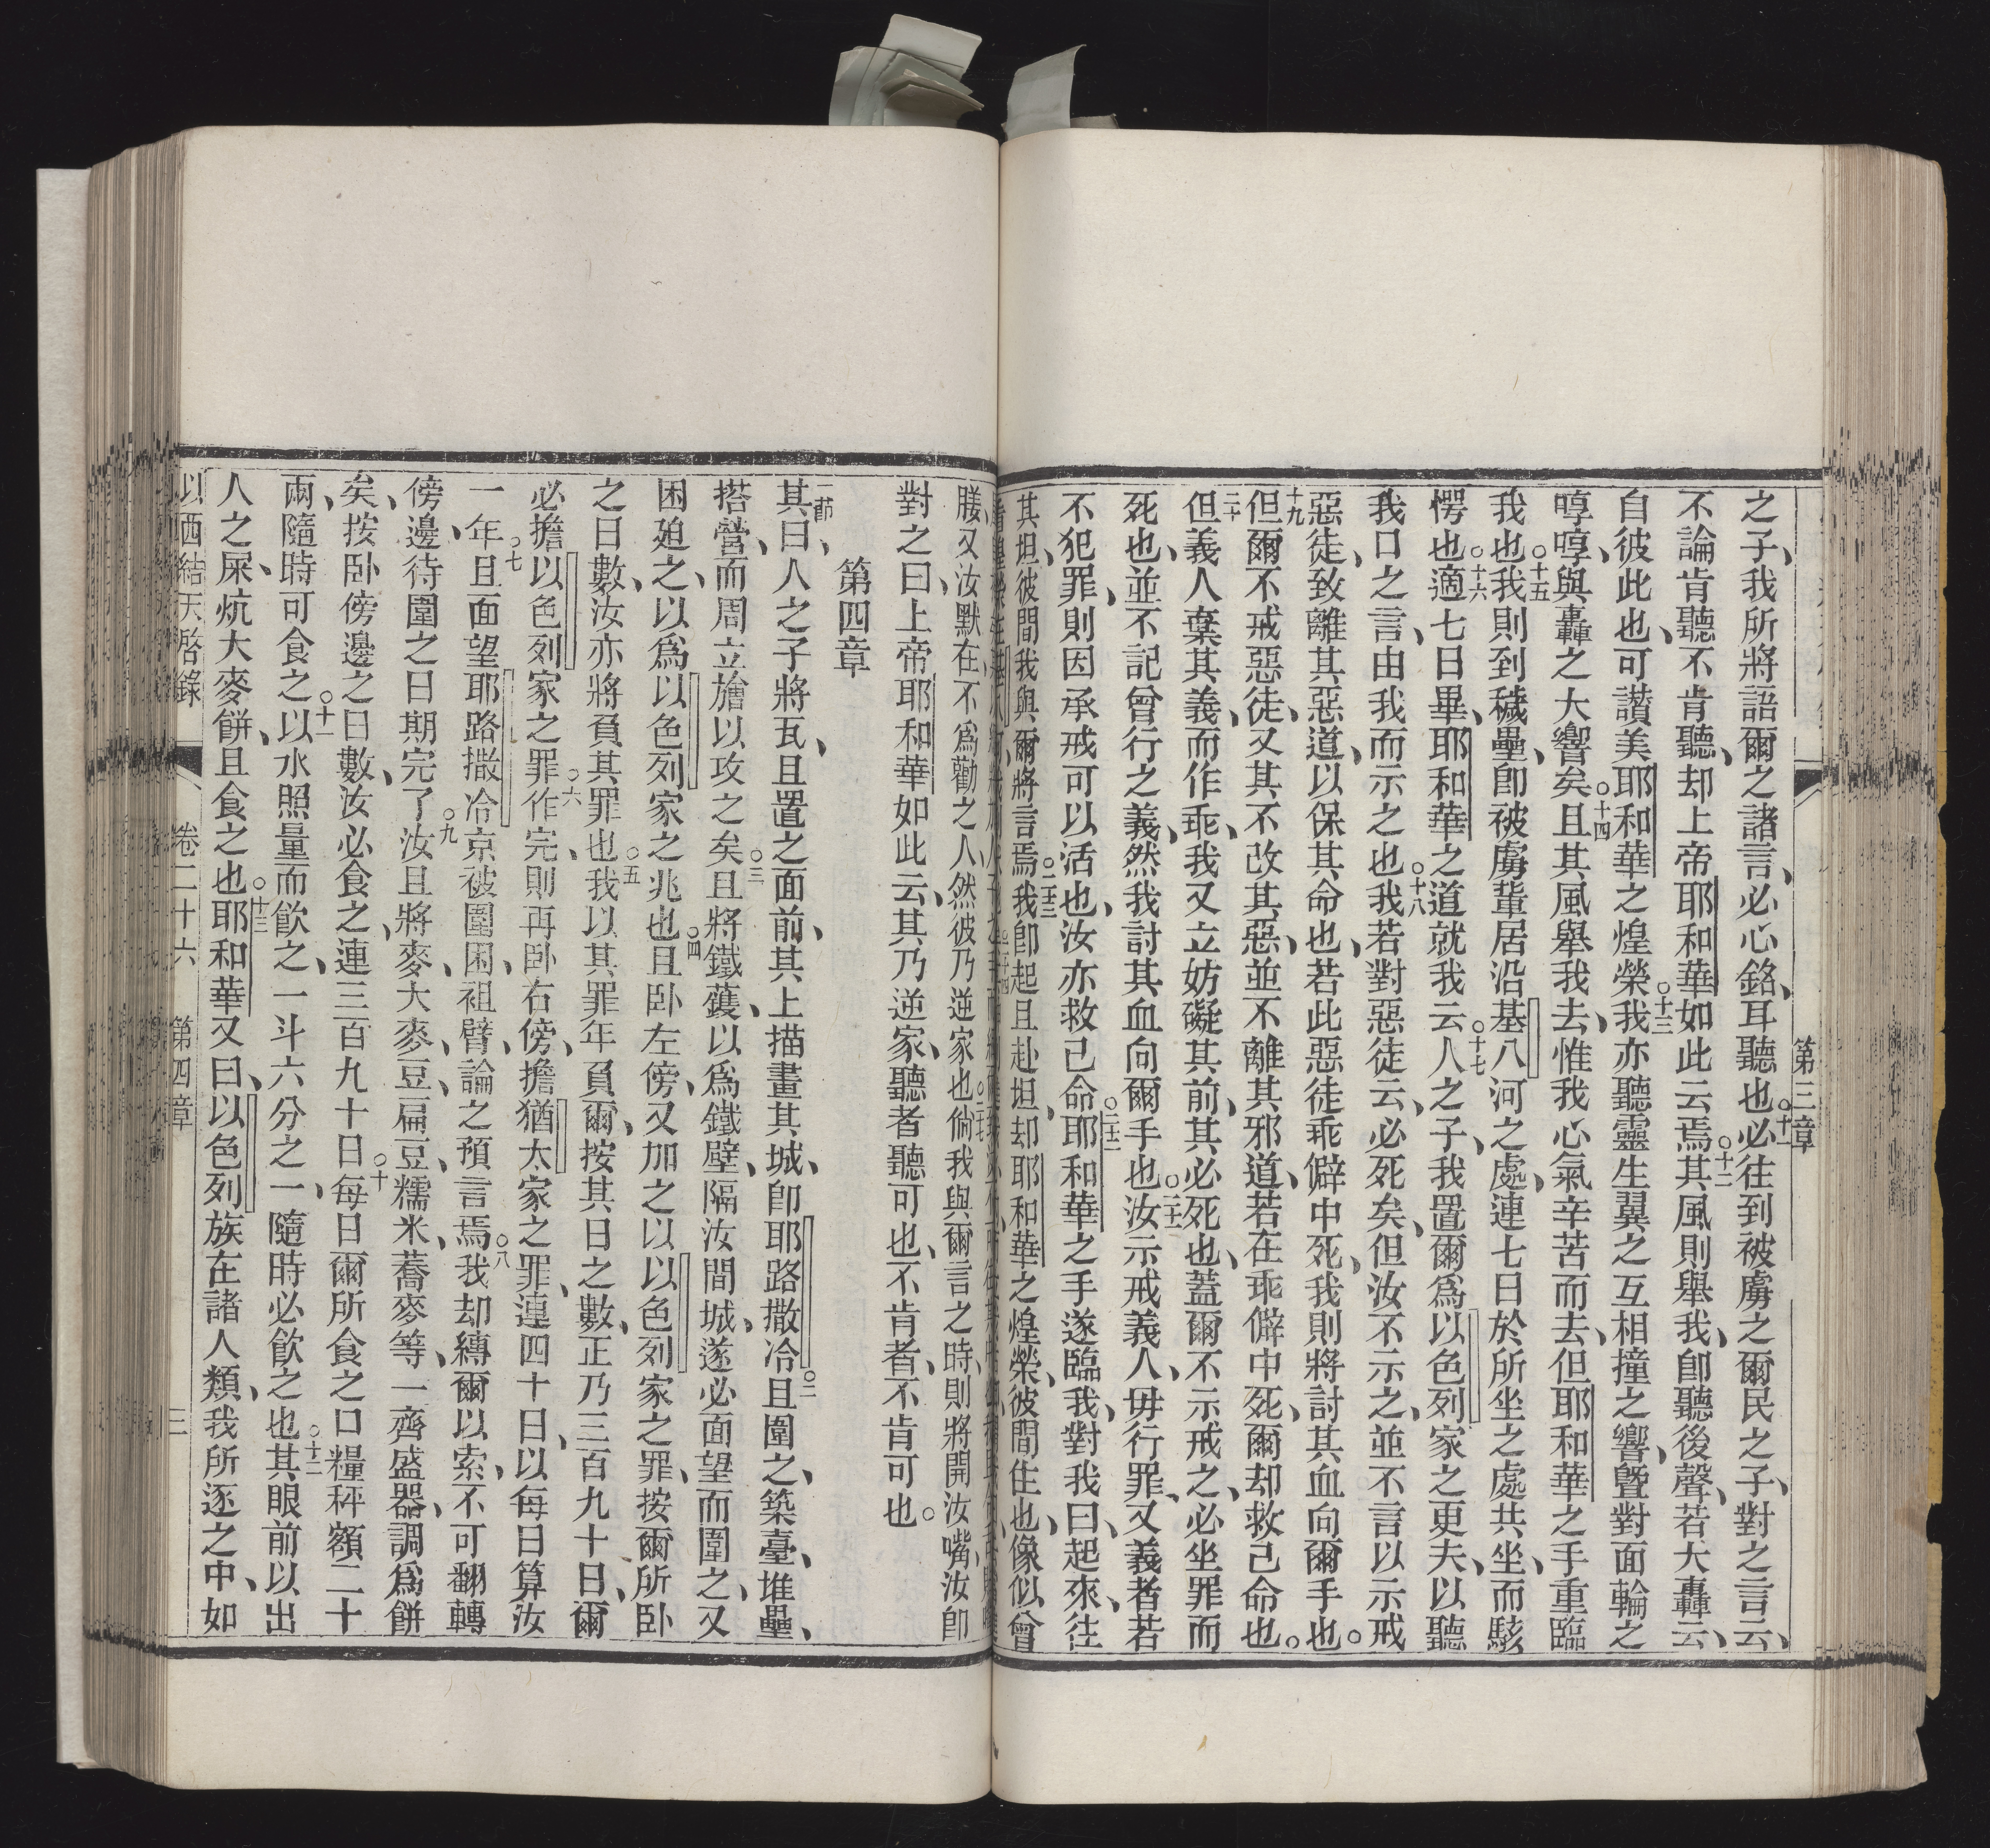 第三章
之子、我所將語爾之諸言、必心銘、耳聽也。十一必往到被虜之爾民之子、對之言云、
不論肯聽、不肯聽、却上帝耶和華如此云焉。十二其風則舉我、卽聽後聲、若大轟云、
自彼此也、可讚美耶和華之煌榮。十三我亦聽靈生翼之互相撞之響、曁對面輪之
啍啍、與轟之大響矣。十四且其風舉我去、惟我心氣辛苦而去、但耶和華之手重臨
我也。十五我則到穢壘、卽被虜輩居沿基八河之處、連七日於所坐之處共坐、而駭
愕也。十六適七日畢、耶和華之道就我云。十七人之子、我置爾爲以色列家之更夫、以聽
我口之言、由我而示之也。十八我若對惡徒云、必死矣、但汝不示之、並不言以示戒
惡徒、致離其惡道、以保其命也、若此惡徒乖僻中死、我則將討其血向爾手也。
十九但爾不戒惡徒、又其不改其惡、並不離其邪道、若在乖僻中死、爾却救己命也。
二十但義人棄其義、而作乖、我又立妨礙其前、其必死也、蓋爾不示戒之、必坐罪而
死也、並不記曾行之義、然我討其血向爾手也。二十一汝示戒義人、毋行罪、又義者若
不犯罪、則因承戒可以活也、汝亦救己命。二十二耶和華之手遂臨我、對我曰、起來、往
其坦、彼間我與爾將言焉。二十三我卽起且赴坦、却耶和華之煌榮、彼間住也、像似曾
䐉、又汝默在、不爲勸之人、然彼乃逆家也。二十七倘我與爾言之時、則將開汝嘴、汝卽
對之曰、上帝耶和華如此云、其乃逆家、聽者聽可也、不肯者、不肯可也。
第四章
一節其曰、人之子將瓦、且置之面前、其上描畫其城、卽耶路撒冷。二且圍之、築臺、堆壘、
搭營、而周立㿙以攻之矣。三且將鐵鑊、以爲鐵壁、隔汝間城、遂必面望而圍之、又
困廹之、以爲以色列家之兆也。四且卧左傍、又加之以以色列家之罪、按爾所卧
之日數、汝亦將負其罪也。五我以其罪年負爾、按其日之數、正乃三百九十日、爾
必擔以色列家之罪。六作完、則再卧右傍、擔猶太家之罪、連四十日、以每日算汝
一年。七且面望耶路撒冷京被圍困、袒臂、論之預言焉。八我却縛爾以索、不可翻轉
傍邊、待圍之日期完了。九汝且將麥、大麥、豆、扁豆、糯米、蕎麥等、一齊盛器、調爲餅
矣、按卧傍邊之日數、汝必食之、連三百九十日。十每日爾所食之口糧秤額二十
兩、隨時可食之。十一以水照量而飮之、一斗六分之一、隨時必飮之也。十二其眼前以出
人之屎、炕大麥餅、且食之也。十三耶和華又曰、以色列族在諸人類、我所逐之中、如
以西結天啓錄 卷二十六 第四章 三